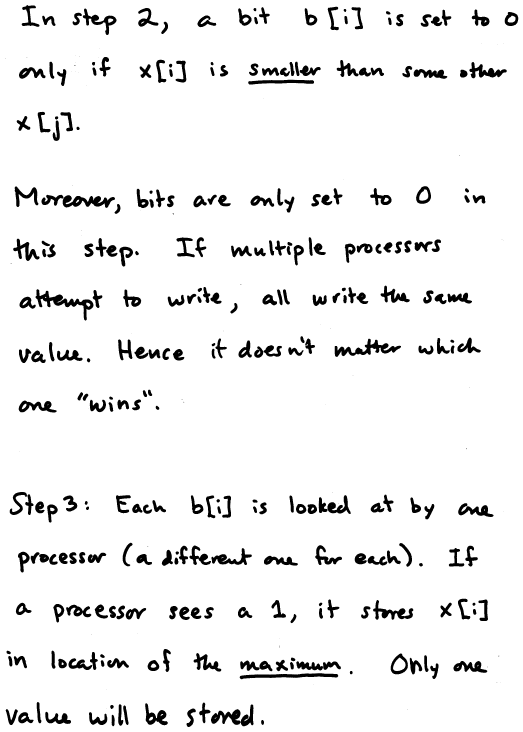 In step 2, a bit b[i] is set to 0
only if x[i] is smaller than some other
x[j].
Moreover, bits are only set to 0 in
this step. If multiple processors
attempt to write, all write the same
value. Hence it doesn't matter which
one "wins".
Step 3: Each b[i] is looked at by one
processor (a different one for each). If
a processor sees a 1, it stores x[i]
in location of the maximum. Only one
value will be stored.